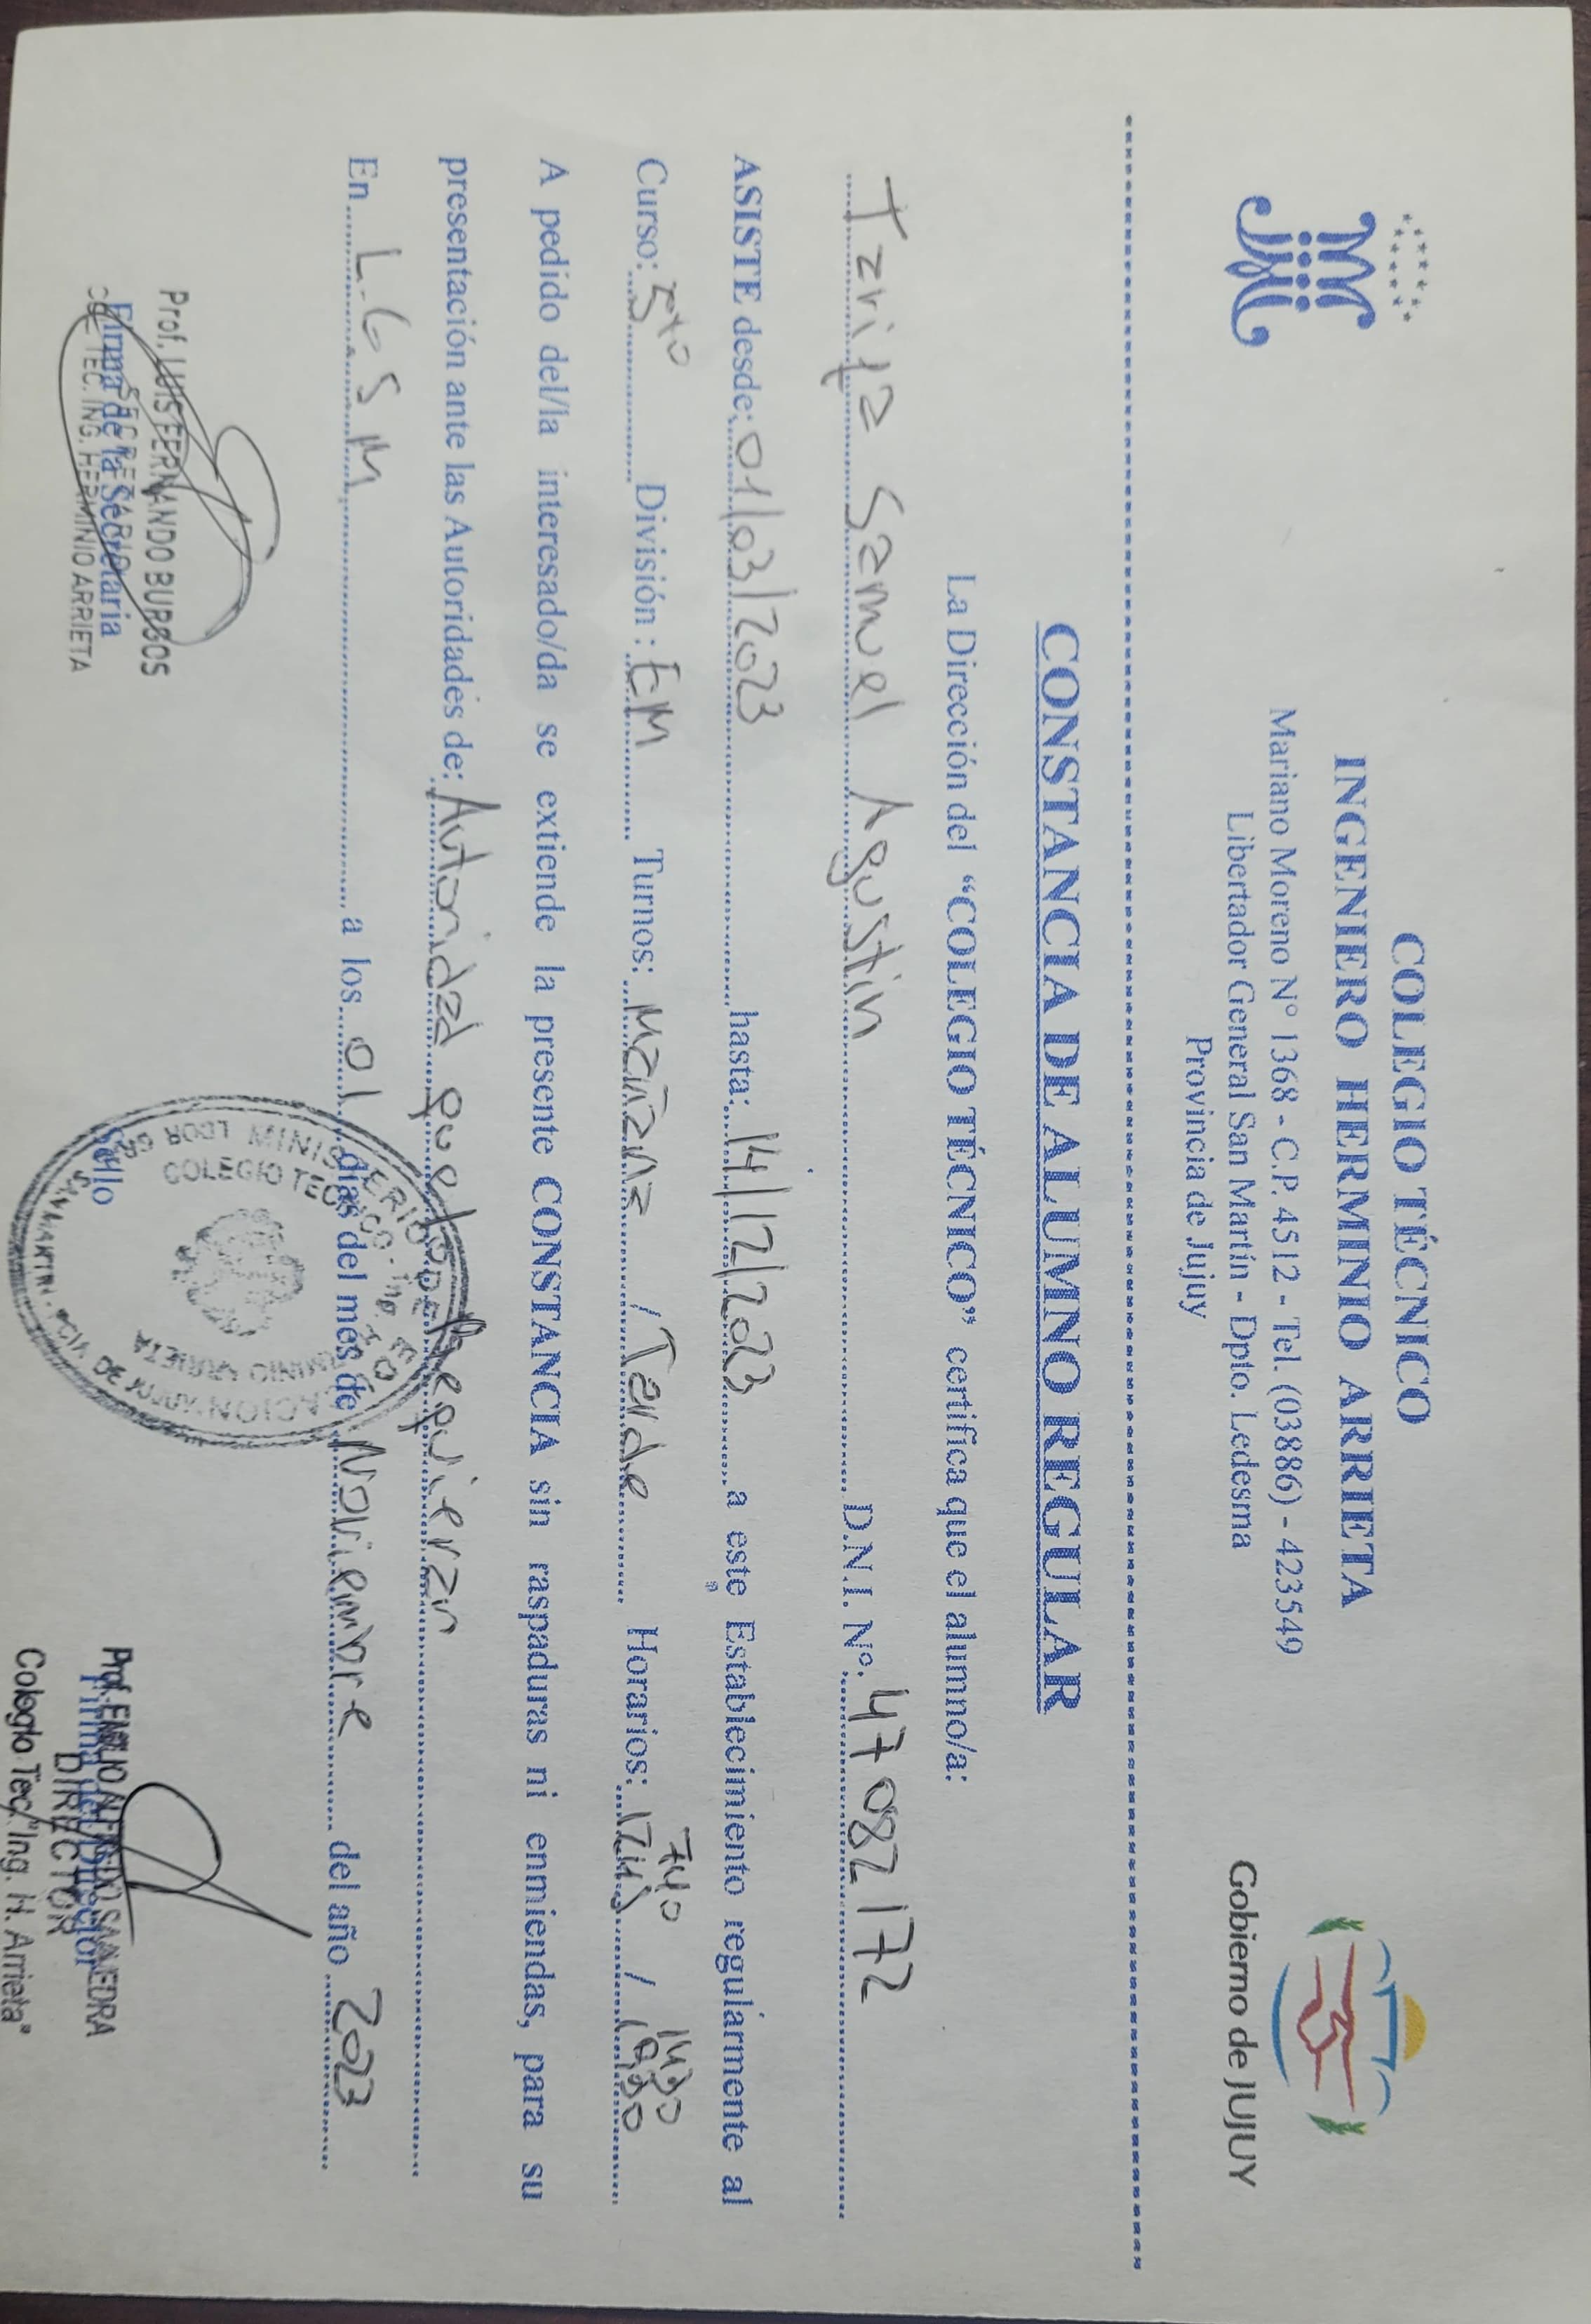 COLEGIO TÉCNICO
INGENIERO HERMINIO ARRIETA
Mariano Moreno N° 1368 - C.P. 4512 - Tel. (03886) - 423549
Libertador General San Martín - Dpto. Ledesma
Provincia de Jujuy
Gobierno de JUJUY
CONSTANCIA DE ALUMNO REGULAR
La Dirección del “COLEGIO TÉCNICO” certifica que el alumno/a:
Tarifa Samuel Agustin D.N.I. N°: 47082172
ASISTE desde: 01/03/2023 hasta: 14/12/2023 a este Establecimiento regularmente al
Curso: 5to División : EM Turnos: Mañana / Tarde Horarios: 740 / 1430
A pedido del/la interesado/da se extiende la presente CONSTANCIA sin raspaduras ni enmiendas, para su
presentación ante las Autoridades de: Autoridad que lo requieran
En L.G S M a los 01 días del mes de Noviembre del año 2023
Prof. LUIS FERNANDO BURGOS
SECRETARIO
Firma de la Secretaria
COL. TEC. ING. HERMINIO ARRIETA
Sello
MINISTERIO DE EDUCACION
COLEGIO TECNICO - Ing. HERMINIO ARRIETA
LDOR GRAL SAN MARTIN - PCIA DE JUJUY
Prof. EMILIO ALFREDO SAAVEDRA
Firma del Director
DIRECTOR
Colegio Tec. "Ing. H. Arrieta"